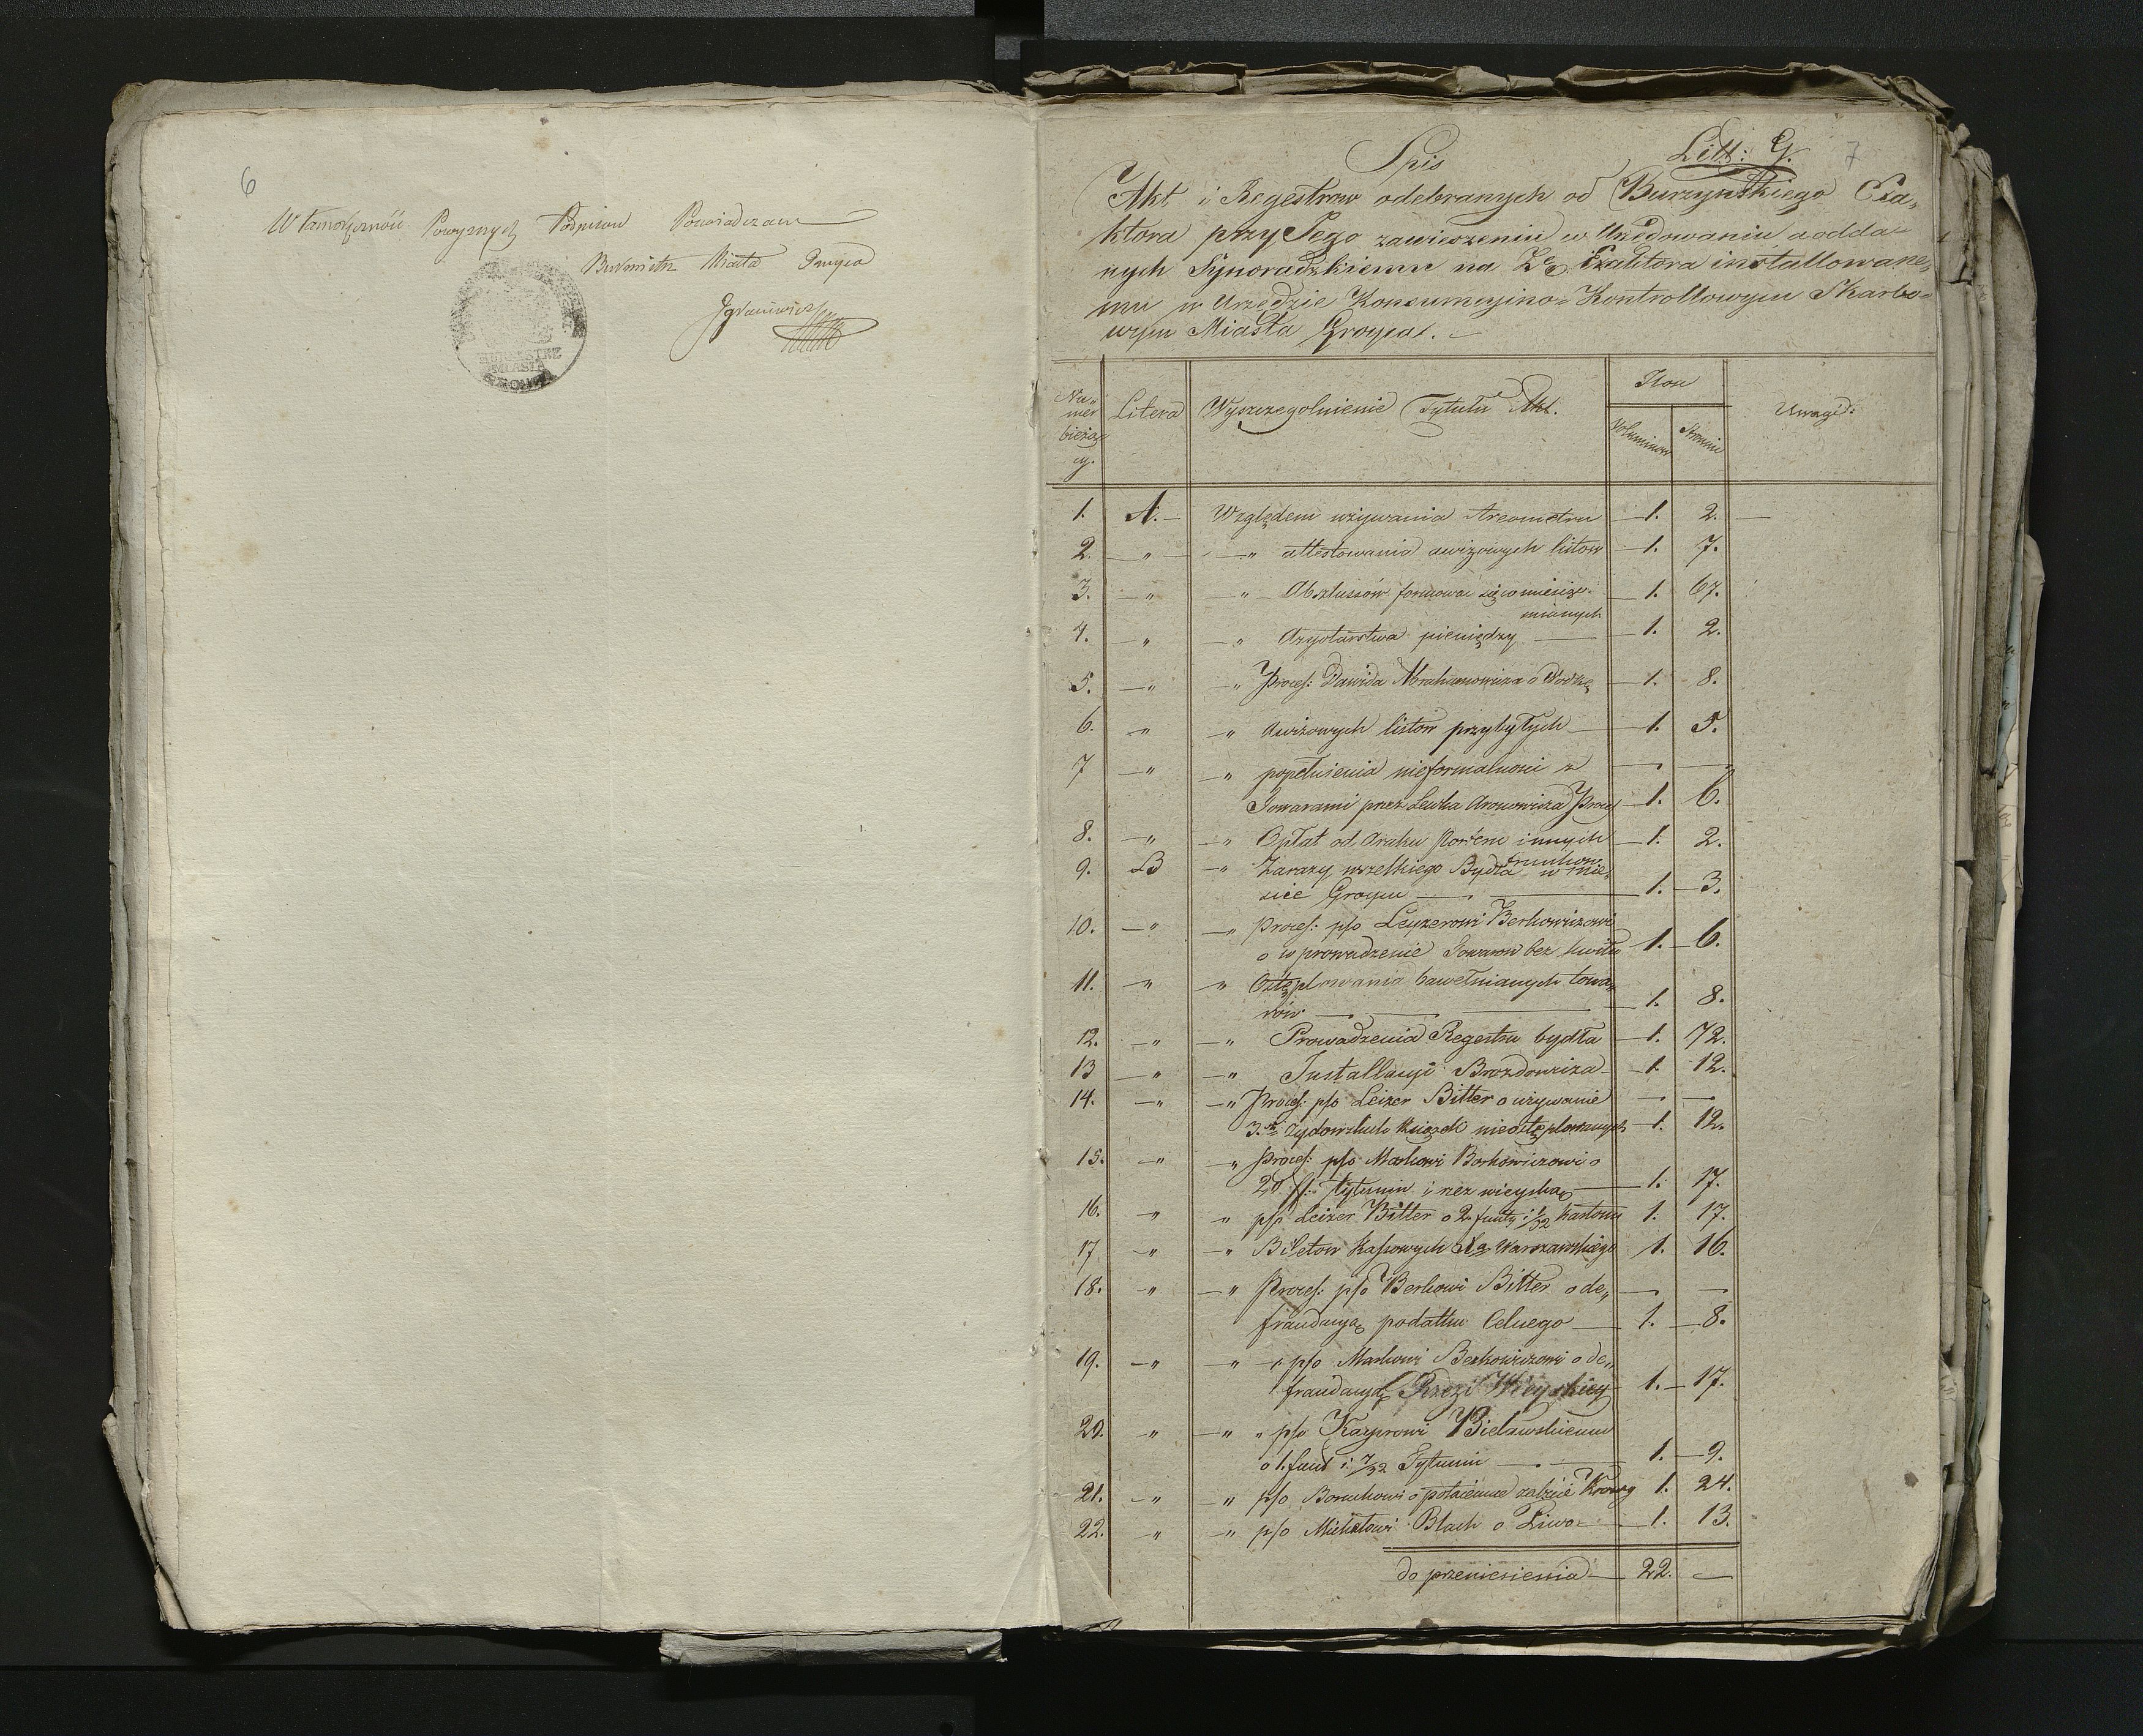 6
Własnoręczność Powyższych Podpisów Poswiadczam
Burmistrz Miasta Groyca
BURMISTRZ
MIASTA
Spis
Litt: G.
7
Akt i Regestrow odebranych od Burzynskiego Exa„
ktora przy Jego zawieszeniu w Urzędowaniu a odda„
nych Synoradzkiemu na Exaktora installowane„
mu w Urzędzie Konsumcyino-Kontrollowym Skarbo„
wym Miasta Groyca.
Nu„
mer
bieżą„
cy.
Litera
Wyszczegolnienie Tytułu Akt.
Ilość
Voluminow
Stronnic
Uwagi:
1. A. Względem używania Areometru 1. 2.
2. „ „ attestowania awizowych listow 1. 7.
3. „ „ Abszlussów formowa się comiesięz- 1. 67.
mianych
4. „ „ Azyotarstwa pieniędzy 1. 2.
5. „ „ Proces: Dawida Abrahamowicza o Wodkę 1. 8.
6. „ „ Awizowych listow przybyłych 1. 5.
7 „ „ popełnienia nieformalnosci z
Towarami przez Lewka Aronowicza Proces 1. 6.
8. „ „ Opłat od Araku Porteru i innych 1. 2.
trunkow
9. B „ Zarazy wszelkiego Bydła w mie„
scie Groycu 1. 3.
10. „ „ Proces: p/o Leyzerowi Berkowiczowi
o wprowadzenie Towarow bez kwitu 1. 6.
11. „ „ Ostęplowania bawełnianych towa„
rów 1. 8.
12. „ „ Prowadzenia Regestru bydła 1. 72.
13 „ „ Installacyi Brozdowicza 1. 12.
14. „ „ Proces: p/o Leizer Bitter o używanie
3. Zydowskich Książek nieostęplowanych 1. 12.
15. „ „ Proces: p/o Markowi Berkowiczowi o
20 tytuniu i rzez wieyską 1. 17.
16. „ „ p/o Leizer Bitter o 2 funty i 1/32 Kartonu 1. 17.
17 „ „ Biletow Kassowych Xa Warszawskiego 1. 16.
18. „ „ Proces: p/o Berkowi Bitter o de„
fraudacyą podatku Celnego 1. 8.
19. „ „ „ p/o Markowi Berkowiczowi o de„
fraudacyą Rzezi Wieyskiey 1. 17.
20. „ „ „ p/o Kasprowi Bielawskiemu
o 1. funt i 7/32 Tytuniu 1. 9.
21. „ „ p/o Boruchowi o potaiemne zabicie Krowy 1. 24.
22. „ „ p/o Michałowi Blach o Piwo 1. 13.
do przeniesienia 22.